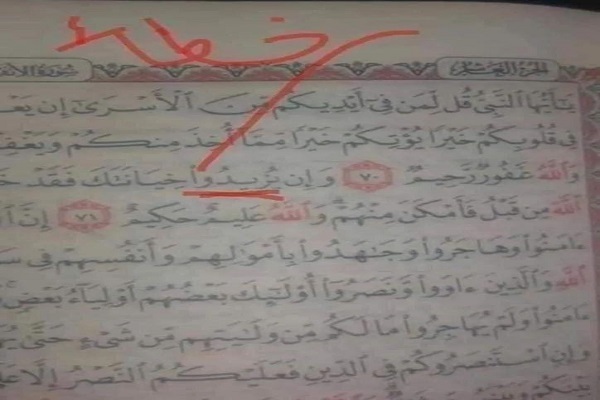 خطئ
الجزء العاشر سورة الأنف
يَٰٓأَيُّهَا ٱلنَّبِىُّ قُل لِّمَن فِىٓ أَيْدِيكُم مِّنَ ٱلْأَسْرَىٰٓ إِن يَعْ
فِى قُلُوبِكُمْ خَيْرًا يُؤْتِكُمْ خَيْرًا مِّمَّآ أُخِذَ مِنكُمْ وَيَغْفِرْ
وَٱللَّهُ غَفُورٌ رَّحِيمٌ ٧٠ وَإِن تُرِيدُوا۟ خِيَانَتَكَ فَقَدْ خَ
ٱللَّهَ مِن قَبْلُ فَأَمْكَنَ مِنْهُمْ وَٱللَّهُ عَلِيمٌ حَكِيمٌ ٧١ إِنَّ ٱ
ءَامَنُوا۟ وَهَاجَرُوا۟ وَجَٰهَدُوا۟ بِأَمْوَٰلِهِمْ وَأَنفُسِهِمْ فِى سَ
ٱللَّهِ وَٱلَّذِينَ ءَاوَوا۟ وَّنَصَرُوٓا۟ أُو۟لَٰٓئِكَ بَعْضُهُمْ أَوْلِيَآءُ بَعْضٍ
ءَامَنُوا۟ وَلَمْ يُهَاجِرُوا۟ مَا لَكُم مِّن وَلَٰيَتِهِم مِّن شَىْءٍ حَتَّىٰ يُهَ
وَإِنِ ٱسْتَنصَرُوكُمْ فِى ٱلدِّينِ فَعَلَيْكُمُ ٱلنَّصْرُ إِلَّا عَلَ
بَيْنَكُمْ